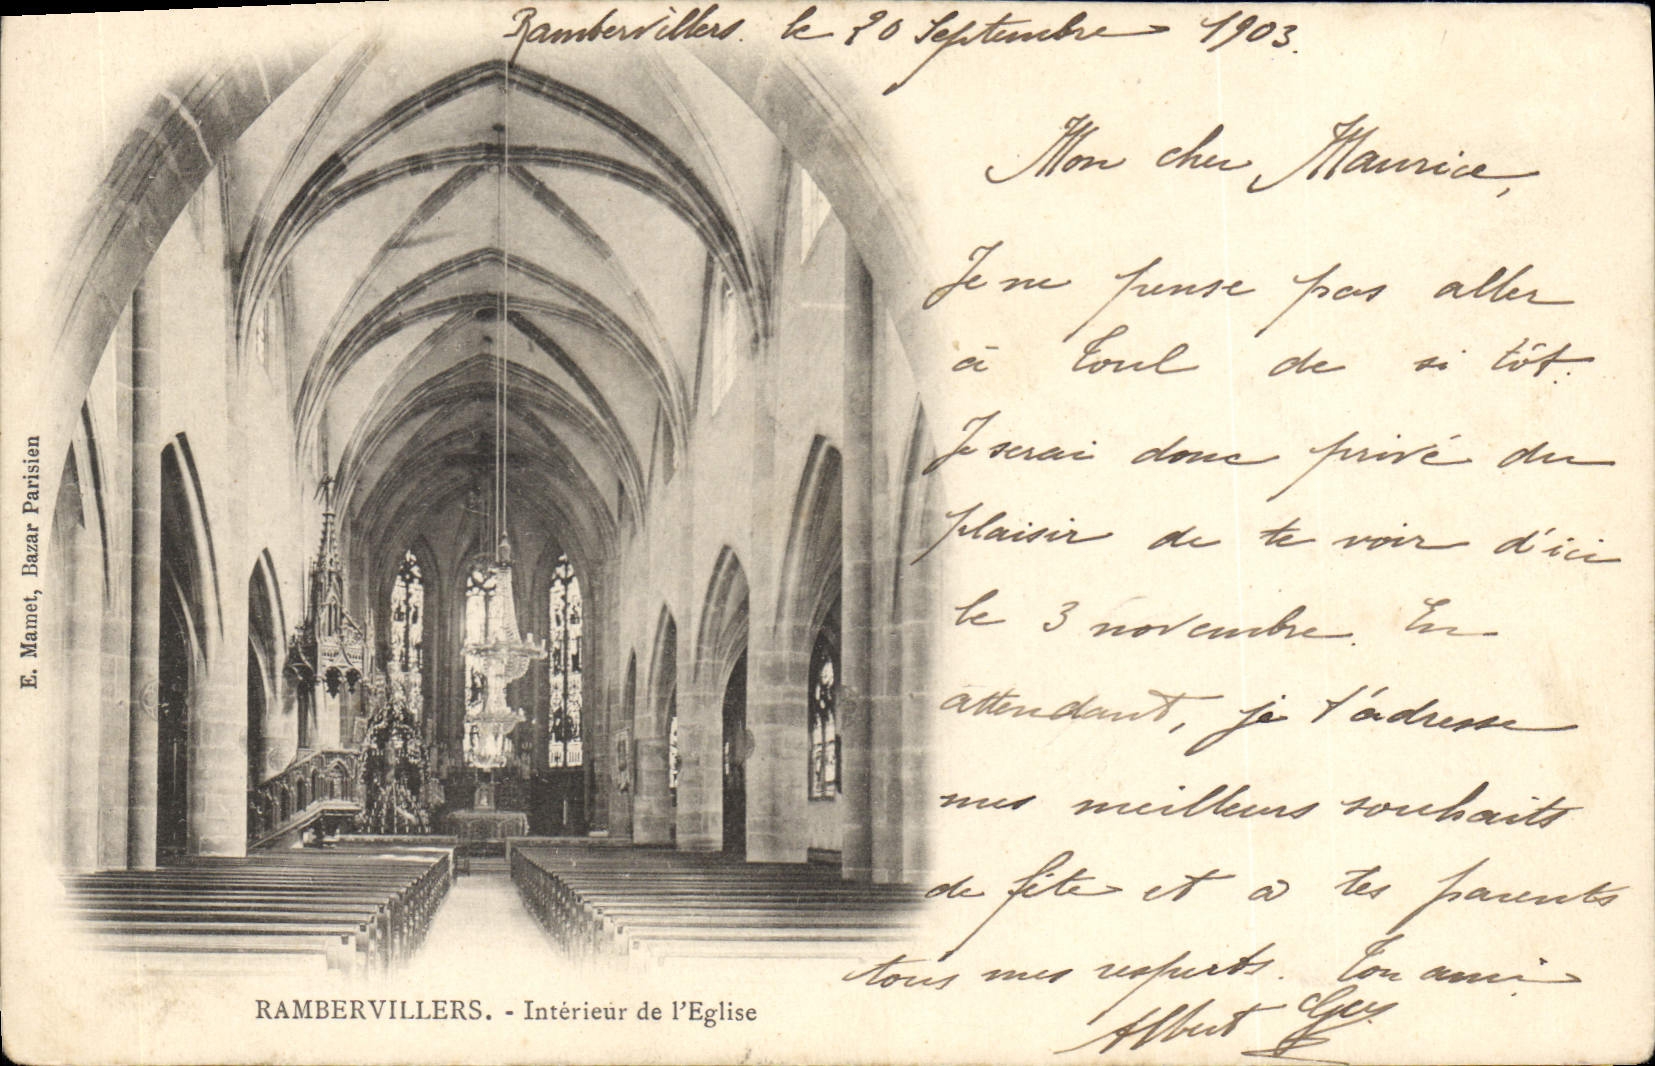 Rambervillers. le 20 Septembre 1903.
Mon cher Maurice,
Je ne pense pas aller
à Toul de si tôt.
Je serai donc privé du
plaisir de te voir d'ici
le 3 novembre. En
attendant, je t'adresse
mes meilleurs souhaits
de fête et à tes parents
tous mes respects. Ton ami
Albert Guy
E. Mamet, Bazar Parisien
RAMBERVILLERS. - Intérieur de l'Eglise